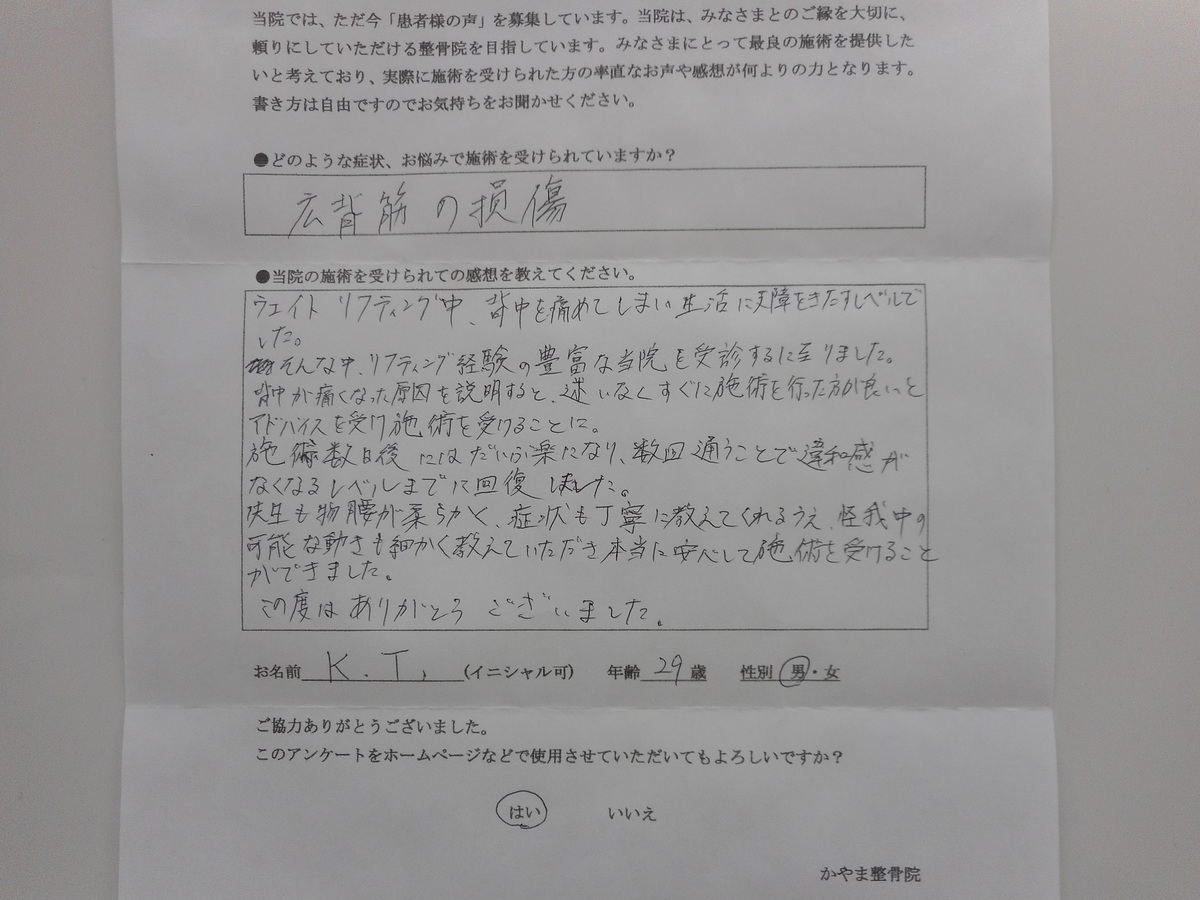 当院では、ただ今「患者様の声」を募集しています。当院は、みなさまとのご縁を大切に、
頼りにしていただける整骨院を目指しています。みなさまにとって最良の施術を提供した
いと考えており、実際に施術を受けられた方の率直なお声や感想が何よりの力となります。
書き方は自由ですのでお気持ちをお聞かせください。
●どのような症状、お悩みで施術を受けられていますか？
広背筋の損傷
●当院の施術を受けられての感想を教えてください。
ウェイトリフティング中、背中を痛めてしまい生活に支障をきたすレベルで
した。
そんな中、リフティング経験の豊富な当院を受診するに至りました。
背中が痛くなった原因を説明すると、迷いなくすぐに施術を行った方が良いと
アドバイスを受け施術を受けることに。
施術数日後にはだいぶ楽になり、数回通うことで違和感が
なくなるレベルまでに回復しました。
先生も物腰が柔らかく、症状も丁寧に教えてくれるうえ、怪我中の
可能な動きも細かく教えていただき本当に安心して施術を受けること
ができました。
この度はありがとうございました。
お名前 K.T. (イニシャル可) 年齢 29 歳 性別 男・女
ご協力ありがとうございました。
このアンケートをホームページなどで使用させていただいてもよろしいですか？
はい いいえ
かやま整骨院